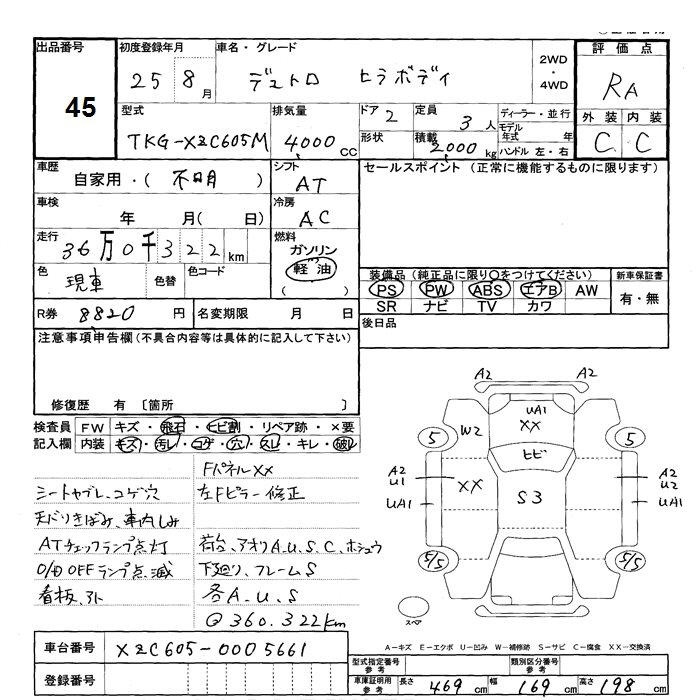 出品番号
45
初度登録年月
25 8月
車名・グレード
デュトロ ヒラボディ
2WD・4WD
評価点
RA
外装 内装
C C
型式
TKG-XZC605M
排気量
4000cc
ドア 2
形状
定員 3人
積載 2000kg
ディーラー・並行
モデル年式 年
ハンドル 左・右
車歴
自家用・( 不明 )
シフト
AT
セールスポイント (正常に機能するものに限ります)
車検
年 月( 日)
冷房
AC
走行
36万0千322km
燃料
ガソリン
軽油
( )
色
現車
色替
色コード
装備品 (純正品に限り○をつけてください)
PS PW ABS エアB AW
SR ナビ TV カワ
新車保証書
有・無
R券 8820円
名変期限 月 日
後日品
注意事項申告欄 (不具合内容等は具体的に記入して下さい)
修復歴 有 〔箇所 〕
検査員記入欄
FW キズ・飛石・ヒビ割・リペア跡・×要
内装 キズ・汚レ・コゲ・穴・スレ・キレ・破レ
シートヤブレ、コゲ穴
天バリきばみ、車内しみ
ATチェックランプ点灯
O/D OFFランプ点滅
看板、アト
FパネルXX
左Fピラー修正
荷台、アオリA.U.S.C、ホシュウ
下廻り、フレームS
各A.U.S
@360.322km
A2 A2
UA1
XX
W2
5 5
ヒビ
A2
U1
UA1
XX
S3
A2
U2
UA1
5/5 5/5
スペア
A−キズ E−エクボ U−凹み W−補修跡 S−サビ C−腐食 XX−交換済
車台番号 XZC605-0005661
登録番号
型式指定番号 参考
類別区分番号 参考
車庫証明用 参考
長さ 469cm 幅 169cm 高さ 198cm